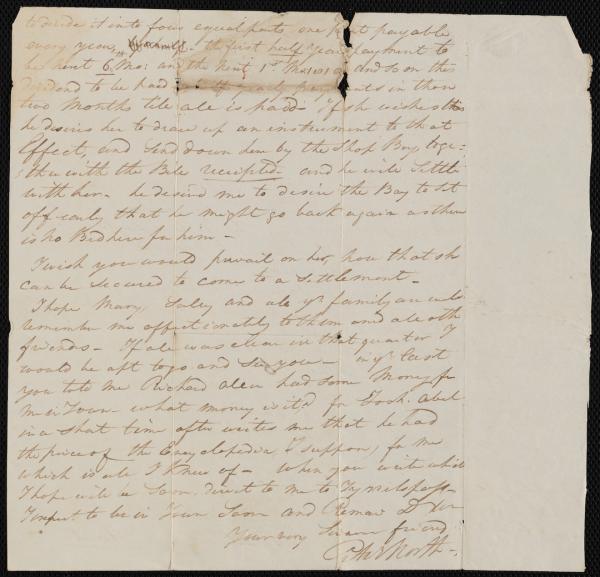 to divide it into four equal parts, one part payable
every year, the first half Year payment to
be next 6 Mo: and the next 1st Mo: 1819 and so on this
dividend to be had half yearly payments in those
two Months till all is paid - If she wishes this
he desires her to draw up an instrument to that
Effect, and send down here by the Shop Boy, toge=
ther with the Bill receipted and he will Settle
with her - he desired me to desire the Boy to set
off early that he might go back again as there
is no Bed here for him -
I wish you would prevail on her, now that she
can be secured to come to a Settlement -
I hope Mary, Saley and all yr family are well
remember me affectionately to them and all oth
friends - If all was clear in that quarter I
would be apt to go and see you - in yr last
you told me Richard Allen had some Money for
me in Town - what money is it for Josh. Abel
in a short time after writes me that he had
the price of the Encyclopedia, I suppose, for me
which is all I knew of - When you write which
I hope will be soon, direct to me to Tyrrelspass -
I expect to be in Town soon and Remain Dr
Your very Sincere friend
North -